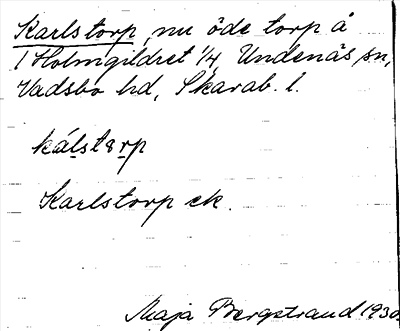 Karlstorp, nu öde torp å
1 Holmgildret 1/4, Undenäs sn,
Vadsbo hd, Skarab. l.
kálstɜrp
Karlstorp ek.
Maja Bergstrand 1930